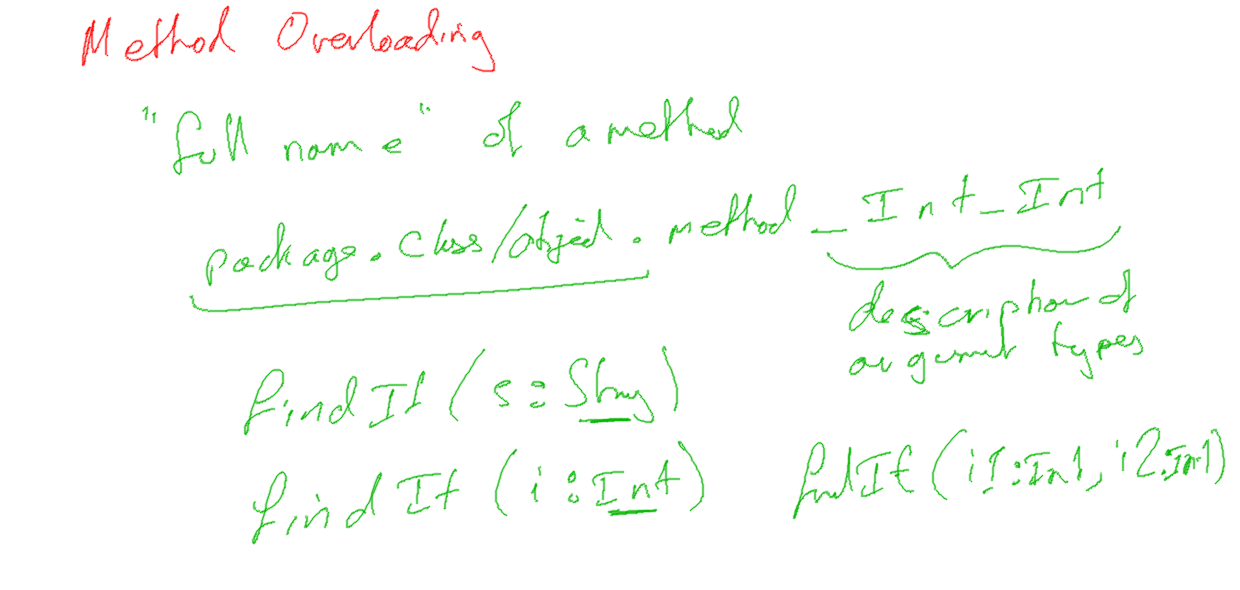 Method Overloading
"full name" of a method
package.class/object.method_Int_Int
description of
argument types
findIt(s:String)
findIt(i:Int) findIt(i1:Int, i2:Int)